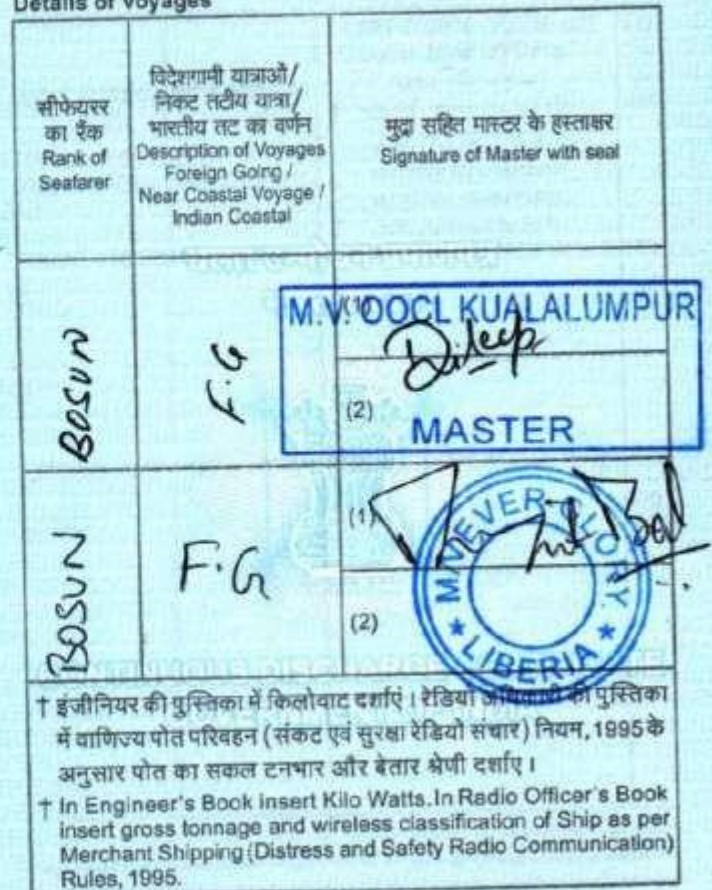 Details of Voyages
सीफेयरर
का रैंक
Rank of
Seafarer
विदेशगामी यात्राओं/
निकट तटीय यात्रा/
भारतीय तट का वर्णन
Description of Voyages
Foreign Going /
Near Coastal Voyage /
Indian Coastal
मुद्रा सहित मास्टर के हस्ताक्षर
Signature of Master with seal
BOSUN
F.G
(1)
M.V. OOCL KUALALUMPUR
Dileep
(2)
MASTER
BOSUN
F.G
(1)
M.V EVER GLORY
LIBERIA
(2)
† इंजीनियर की पुस्तिका में किलोवाट दर्शाएं । रेडियो अधिकारी की पुस्तिका
में वाणिज्य पोत परिवहन (संकट एवं सुरक्षा रेडियो संचार) नियम, 1995 के
अनुसार पोत का सकल टनभार और बेतार श्रेणी दर्शाए ।
† In Engineer's Book insert Kilo Watts. In Radio Officer's Book
insert gross tonnage and wireless classification of Ship as per
Merchant Shipping (Distress and Safety Radio Communication)
Rules, 1995.